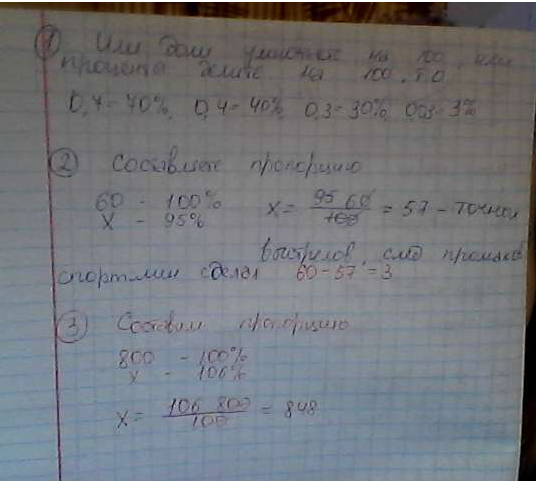 ① Или доли умножаете на 100, или
проценты делите на 100, т.о
0,7=70%, 0,4=40%, 0,3=30%, 0,03=3%
② Составляете пропорцию
60 - 100%
x - 95%
x = 95 60 / 100 = 57 - точных
выстрелов, след промахов
спортсмен сделал 60-57=3
③ Составим пропорцию
800 - 100%
x - 106%
x = 106 800 / 100 = 848